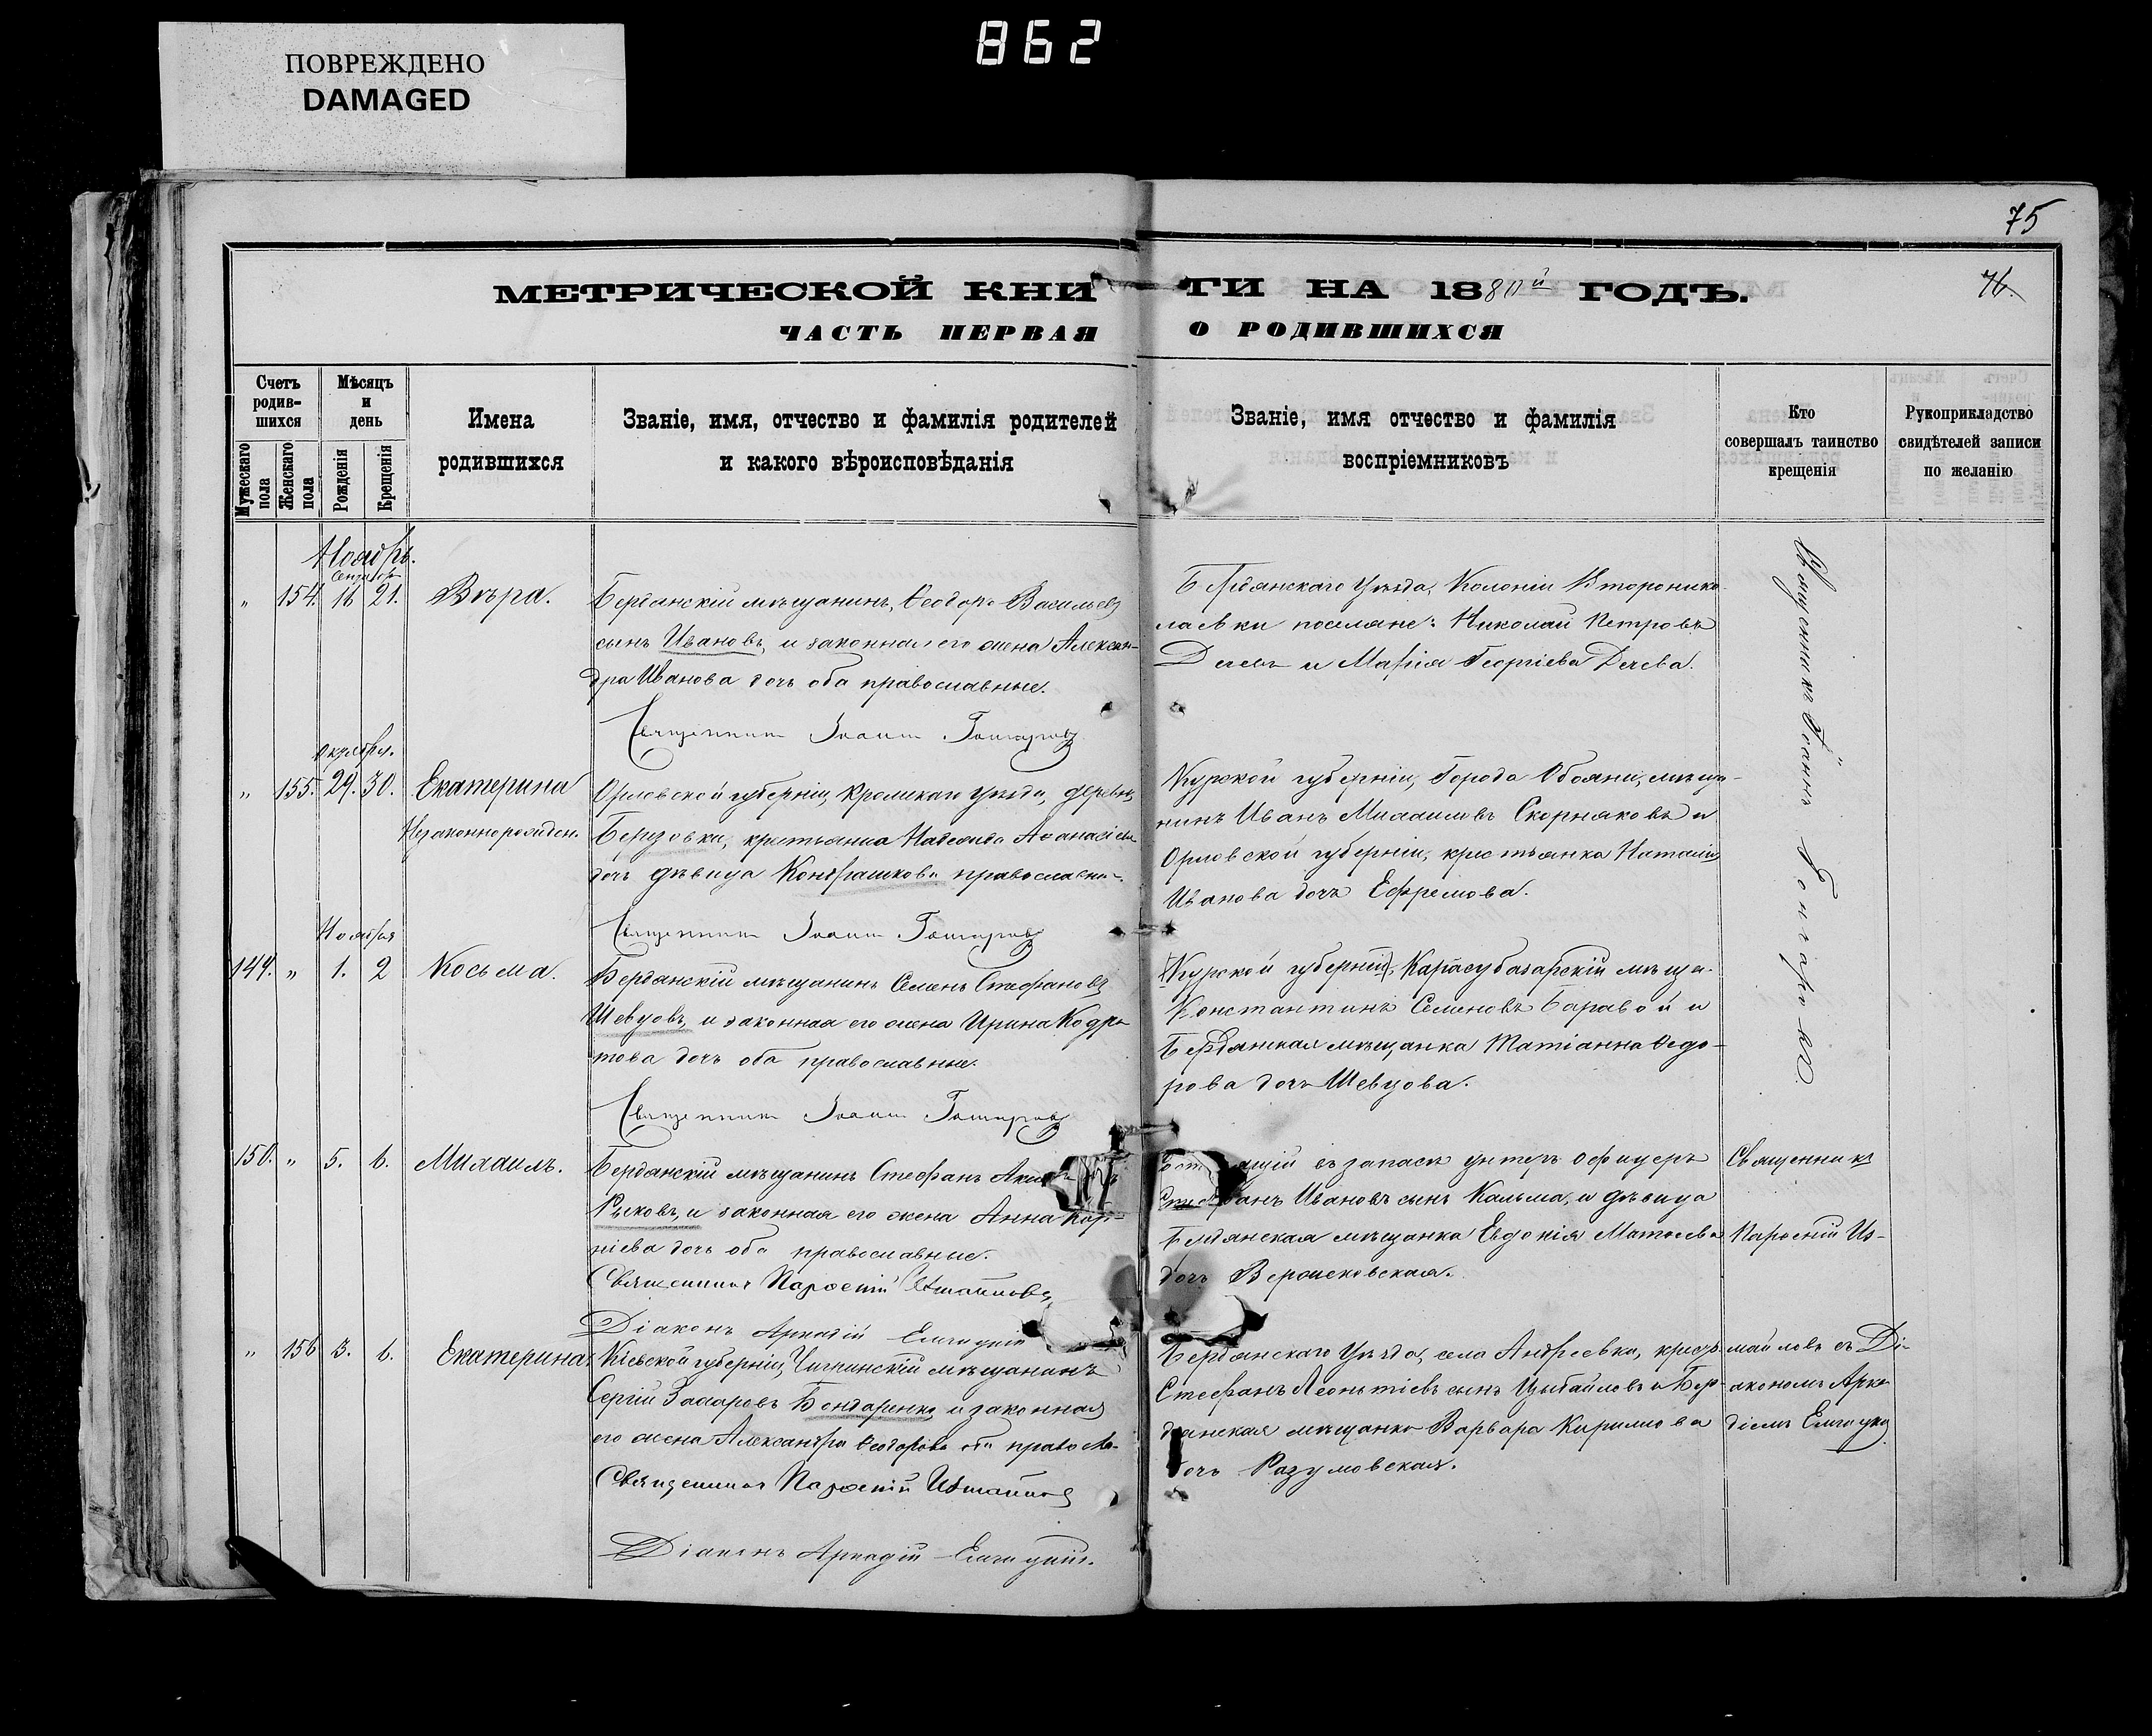 862
ПОВРЕЖДЕНО
DAMAGED
75
76.
МЕТРИЧЕСКОЙ КНИГИ НА 1880й ГОДЪ.
ЧАСТЬ ПЕРВАЯ О РОДИВШИХСЯ
Счетъ родившихся
Мужескаго пола
Женскаго пола
Мѣсяцъ и день
Рожденія
Крещенія
Имена родившихся
Званіе, имя, отчество и фамилія родителей
и какого вѣроисповѣданія
Званіе, имя отчество и фамилія
воспріемниковъ
Кто
совершалъ таинство
крещенія
Рукоприкладство
свидѣтелей записи
по желанію
Ноябрь.
Сентября
" 154. 16 21. Вѣра.
Бердянскій мѣщанинъ, Ѳеодоръ Васильевъ
сынъ Ивановъ, и законная его жена Алексан-
дра Иванова дочь оба православные.
Священникъ Іоаннъ Гончаровъ
Бердянскаго Уѣзда, Колоніи Второнико-
лаевки поселяне: Николай Петровъ
Дечевъ и Марія Георгіева Дечева.
Священникъ Іоаннъ Гончаровъ.
Октября.
" 155. 29. 30. Екатерина
Незаконнорожден.
Орловской губерніи, Кромскаго Уѣзда, деревни
Березовки, крестьянка Надежда Аѳанасіева
дочь дѣвица Кондрашкова православная.
Священникъ Іоаннъ Гончаровъ
Курской губерніи, Города Обояни, мѣща-
нинъ Иванъ Михаиловъ Скорняковъ и
Орловской губерніи, крестьянка Наталія
Иванова дочь Ефремова.
Ноября
149. " 1. 2 Косьма.
Бердянскій мѣщанинъ Семенъ Стефановъ
Шевцовъ, и законная его жена Ирина Кодра-
това дочь оба православные.
Священникъ Іоаннъ Гончаровъ
(Курской губерніи), Карасубазарскій мѣща.
Константинъ Семеновъ Баравой и
Бердянская мѣщанка Татіанна Ѳедо-
рова дочь Шевцова.
150. " 5. 6. Михаилъ.
Бердянскій мѣщанинъ Стефанъ
Рыковъ, и законная его жена Анна Кор-
ніева дочь оба православные.
Священникъ Парѳеній Измайловъ
Діаконъ Аркадій
въ запасѣ унтеръ офицеръ
Стефанъ Ивановъ сынъ Кальма, и дѣвица
Бердянская мѣщанка Евдокія Матѳеева
дочь
Священникъ
Парѳеній Из-
" 156 3. 6. Екатерина
Кіевской губерніи, Чигиринскій мѣщанинъ
Сергій Захаровъ Бондаренко, и законная
его жена Александра Ѳеодорова оба правосла-
Священникъ Парѳеній Измайловъ
Діаконъ Аркадій
Бердянскаго Уѣзда, села Андреевки, крест.
Стефанъ Леонтіевъ сынъ Цыбайловъ и Бер-
дянская мѣщанка Варвара Кириллова
дочь Разумовская.
майловъ съ Ді-
акономъ Арка-
діемъ